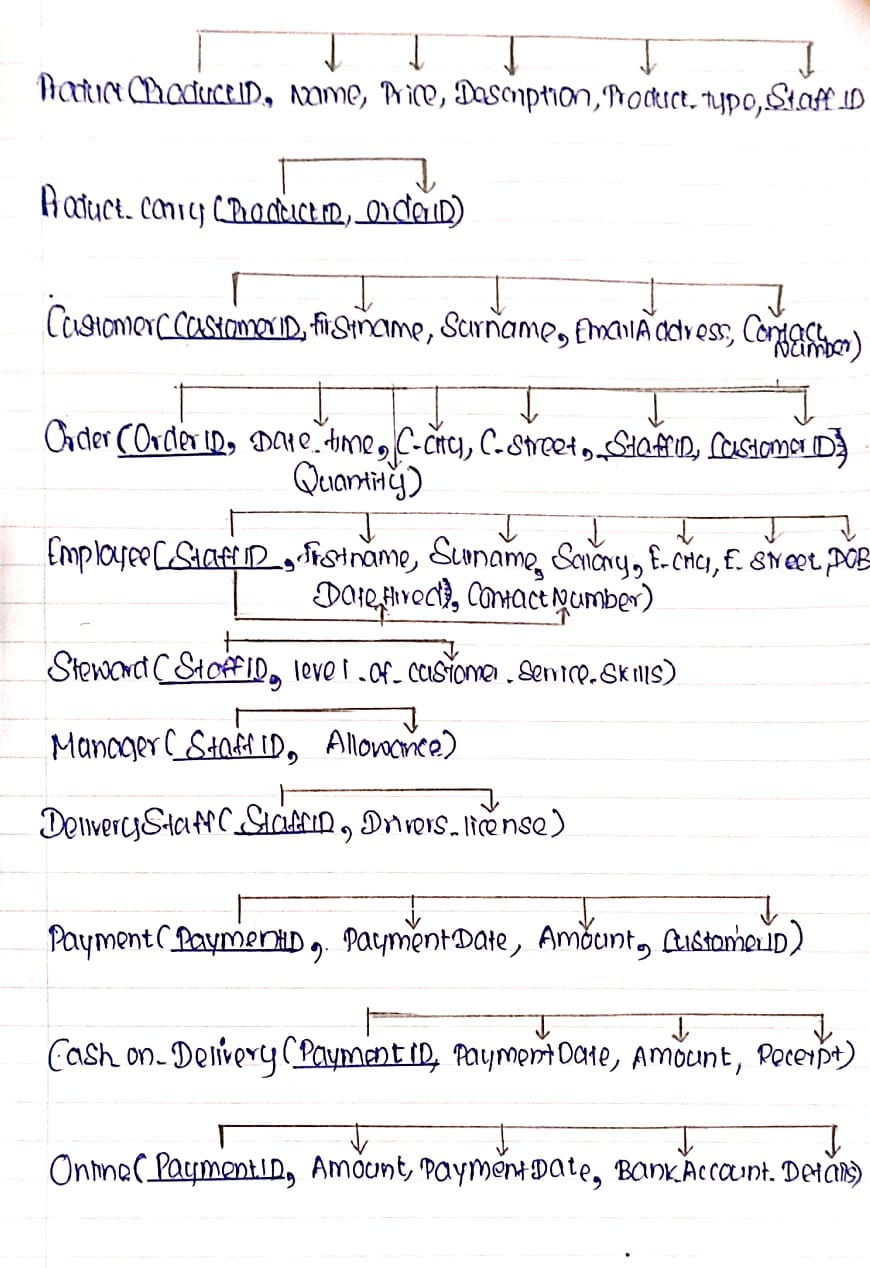 Product (ProductID, Name, Price, Description, Product_type, Staff ID
Product_Carry (ProductID, OrderID)
Customer (CustomerID, firstname, Surname, EmailAddress, Contact Number)
Order (OrderID, Date_time, C-City, C-Street, StaffID, CustomerID}
Quantity)
Employee (StaffID, firstname, Surname, Salary, E-City, E_Street, DOB
Date Hired}, Contact Number)
Steward (StaffID, level_of_customer_Service_Skills)
Manager (StaffID, Allowance)
DeliveryStaff (StaffID, Drivers_license)
Payment (PaymentID, PaymentDate, Amount, CustomerID)
Cash on_Delivery (PaymentID, PaymentDate, Amount, Receipt)
Online (PaymentID, Amount, PaymentDate, Bank_Account_Details)